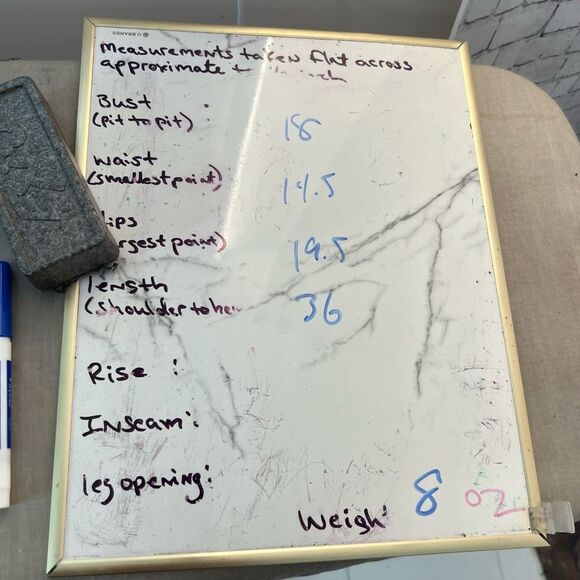 U BRANDS
measurements taken flat across
approximate
Bust :
(pit to pit) 18
waist
(smallest point) 14.5
Hips
largest point) 19.5
length
(shoulder to hem 36
Rise :
Inseam:
leg opening:
weigh 8 oz